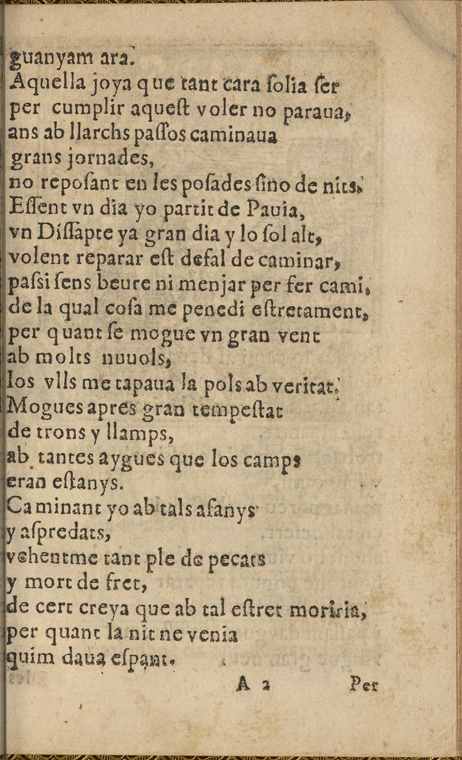 guanyam ara.
Aquella joya que tant cara ſolia ſer
per cumplir aqueſt voler no paraua,
ans ab llarchs paſſos caminaua
grans jornades,
no repoſant en les poſades ſino de nits.
Eſſent vn dia yo partit de Pauia,
vn Diſſapte ya gran dia y lo ſol alt,
volent reparar eſt defal de caminar,
paſsi ſens beure ni menjar per fer cami,
de la qual coſa me penedi eſtretament,
per quant ſe mogue vn gran vent
ab molts nuuols,
los vlls me tapaua la pols ab veritat.
Mogues apres gran tempeſtat
de trons y llamps,
ab tantes aygues que los camps
eran eſtanys.
Caminant yo ab tals afanys
y aſpredats,
vehentme tant ple de pecats
y mort de fret,
de cert creya que ab tal eſtret moriria,
per quant la nit ne venia
quim daua eſpant.
A 2 Per